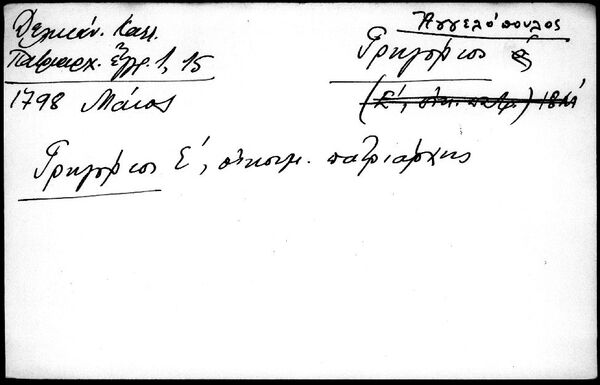 Δελικάν. Καλλ.
Πατριαρχ. Ἔγγρ. 1, 15
1798 Μάιος
Ἀγγελόπουλος
Γρηγόριος
(Ε΄, οἰκ. πατρ.)
Γρηγόριος Ε΄, οἰκουμ. πατριάρχης